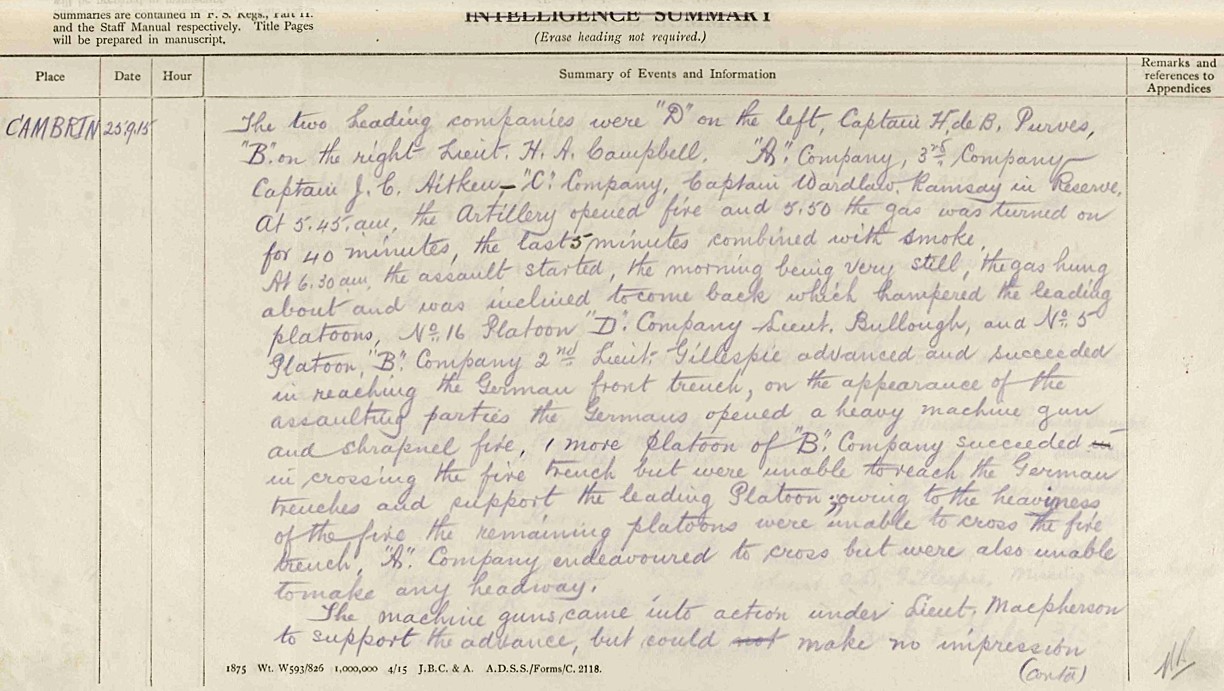 Summaries are contained in F. S. Regs., Part II.
and the Staff Manual respectively. Title Pages
will be prepared in manuscript.
INTELLIGENCE SUMMARY
(Erase heading not required.)
Place
Date
Hour
Summary of Events and Information
Remarks and
references to
Appendices
CAMBRIN
25.9.15
The two leading companies were "D" on the left, Captain H. de B. Purves,
"B" on the right Lieut. H. A. Campbell. "A" Company, 3rd Company
Captain J. C. Aitken, – "C" Company, Captain Wardlaw. Ramsay in Reserve.
At 5.45. am, the Artillery opened fire and 5.50 the gas was turned on
for 40 minutes, the last 5 minutes combined with smoke.
At 6.30 am, the assault started, the morning being very still, the gas hung
about and was inclined to come back which hampered the leading
platoons, No. 16 Platoon "D" Company Lieut. Bullough, and No. 5
Platoon, "B" Company 2nd Lieut. Gillespie advanced and succeeded
in reaching the German front trench, on the appearance of the
assaulting parties the Germans opened a heavy machine gun
and shrapnel fire, 1 more platoon of "B" Company succeeded in
in crossing the fire trench but were unable to reach the German
trenches and support the leading Platoon; owing to the heaviness
of the fire the remaining platoons were unable to cross the fire
trench, "A" Company endeavoured to cross but were also unable
to make any headway.
The machine guns came into action under Lieut. Macpherson
to support the advance, but could not make no impression
(contd)
1875 Wt. W593/826 1,000,000 4/15 J.B.C. & A. A.D.S.S./Forms/C. 2118.